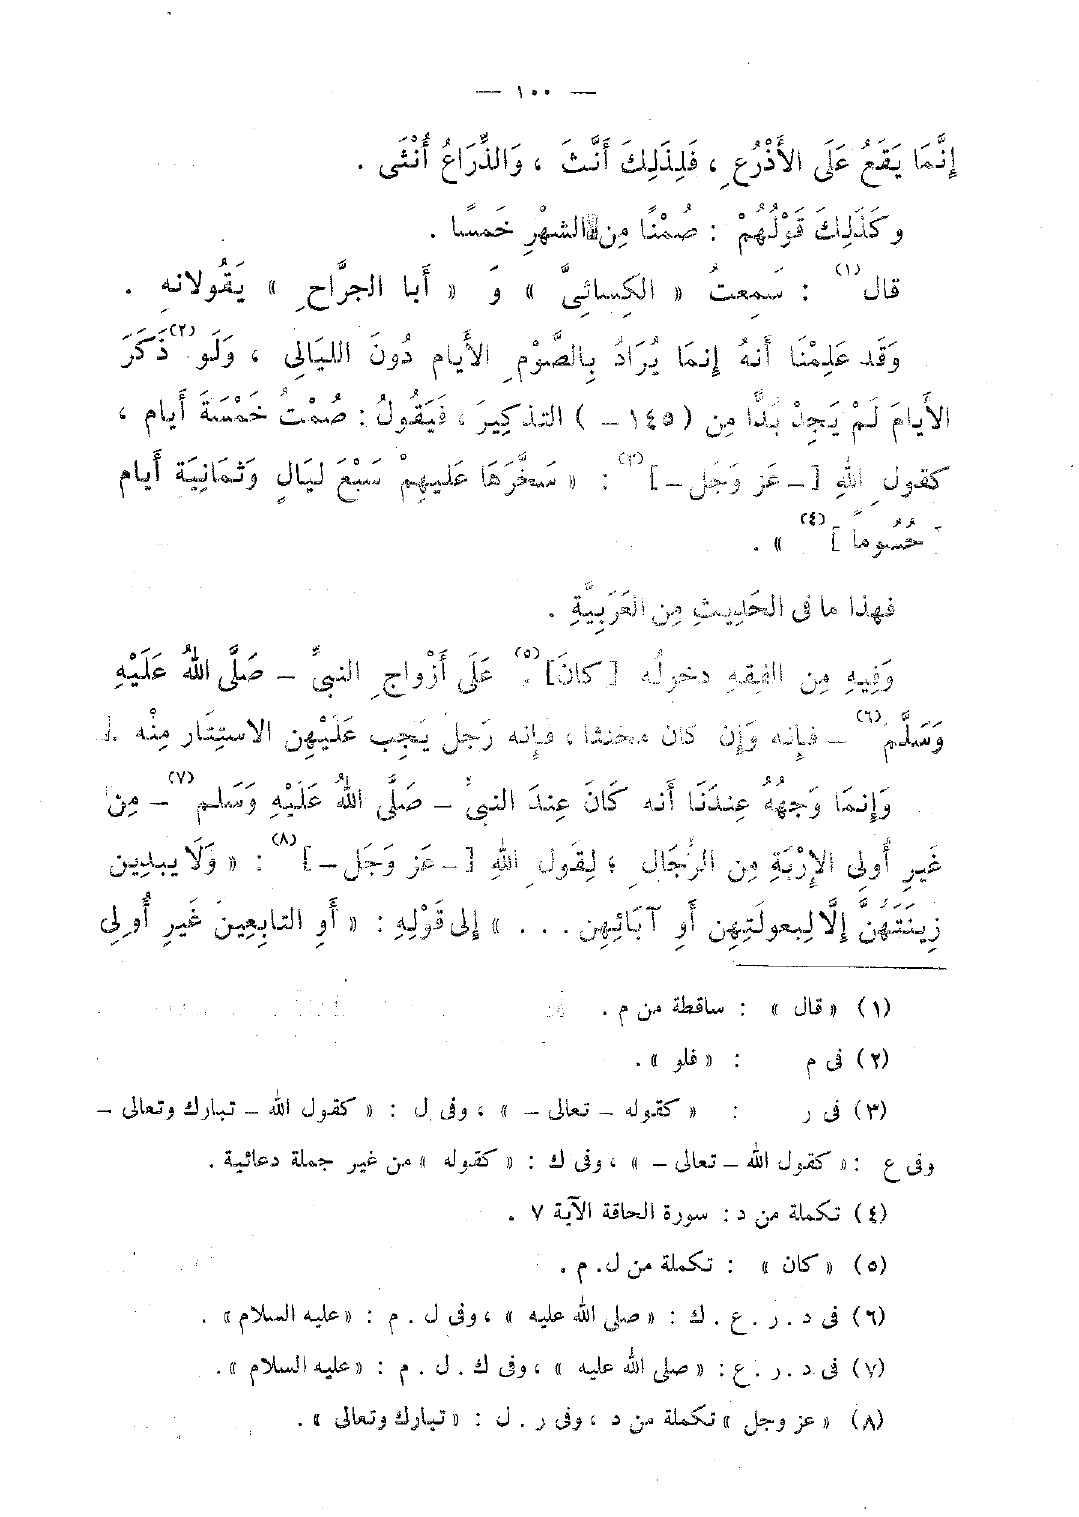 — ١٠٠ —
إِنَّمَا يَقَعُ عَلَى الأَذْرُعِ ، فَلِذَلِكَ أَنَّثَ ، وَالذِّرَاعُ أُنْثَى .
وكَذَلِكَ قَوْلُهُمْ : صُمْنًا مِن الشهْرِ خَمسًا .
قال (١) : سَمِعتُ « الكِسائِىَّ » وَ « أَبا الجرَّاحِ » يَقُولانهِ .
وَقَد عَلِمْنَا أَنهُ إِنمَا يُرَادُ بِالصَّوْمِ الأَيام دُونَ الليَالِى ، وَلَو (٢) ذَكَرَ
الأَيامَ لَمْ يَجِدْ بَدًّا مِن ( ١٤٥ – ) التذكِيرَ ، فَيَقُولُ : صُمْتُ خَمْسَةَ أَيام ،
كقولِ اللهِ [ – عَز وَجَل – ] (٣) : « سَخَّرَهَا عَليهِمْ سَبْعَ ليَالٍ وَثمَانِيَة أَيام
[ حُسُوماً ] (٤) » .
فهذا ما فى الحَدِيثِ مِن العَرَبِيَّةِ .
وَفِيهِ مِن الفِقهِ دخولُه [ كانَ ] (٥) عَلَى أَزْواجِ النبىِّ – صَلَّى اللهُ عَلَيْهِ
وَسَلَّم (٦) – فإِنه وَإِن كان مخنثا ، فإِنه رَجل يَجِب عَلَيْهِن الاستِتَار مِنْه .
وَإِنمَا وَجهُهُ عِندَنَا أَنه كَانَ عِندَ النبىِّ – صَلَّى اللهُ عَلَيْهِ وَسَلم (٧) – مِن
غَيرِ أُولِى الإِرْبَةِ مِن الرِّجَالِ ؛ لِقَولِ اللهِ [ – عَز وَجَل – ] (٨) : « وَلَا يبدِين
زِينَتَهُنَّ إِلَّا لِبعولَتِهِن أَو آبَائِهِن . . . » إِلى قَوْلِهِ : « أَوِ التابِعِينَ غَيرِ أُولِى
(١) « قال » : ساقطة من م .
(٢) فى م : « فلو » .
(٣) فى ر : « كقوله – تعالى – » ، وفى ل : « كقول الله – تبارك وتعالى –
وفى ع : « كقول الله – تعالى – » ، وفى ك : « كقوله » من غير جملة دعائية .
(٤) تكملة من د : سورة الحاقة الآية ٧ .
(٥) « كان » : تكملة من ل . م .
(٦) فى د . ر . ع . ك : « صلى الله عليه » ، وفى ل . م : « عليه السلام » .
(٧) فى د . ر . ع : « صلى الله عليه » ، وفى ك . ل . م : « عليه السلام » .
(٨) « عز وجل » تكملة من د ، وفى ر . ل : « تبارك وتعالى » .